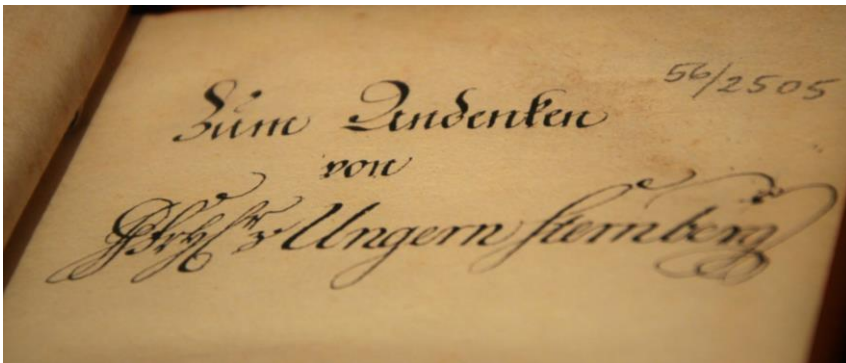 56/2505
Zum Andenken
von
Ungern Sternberg